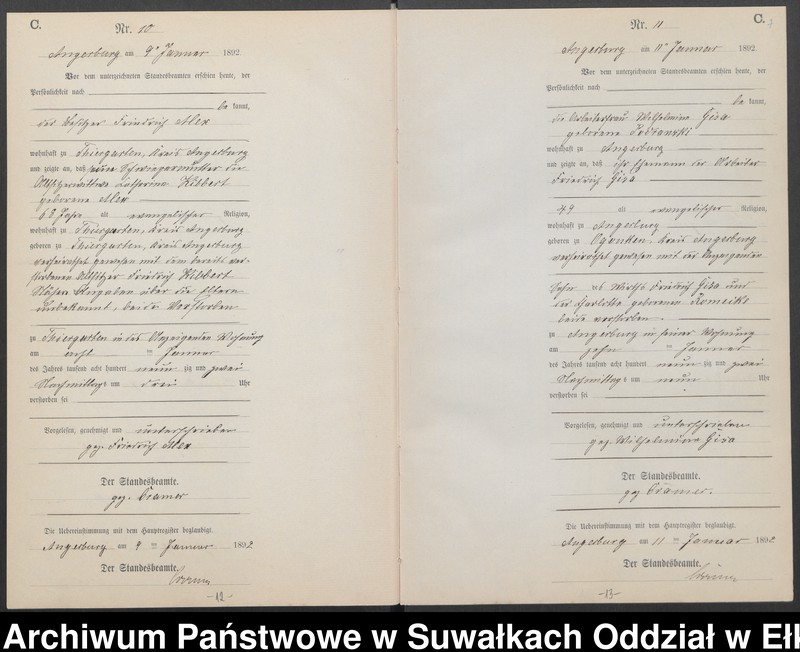 C.
Nr. 10
Angerburg am 9n Januar 1892.
Vor dem unterzeichneten Standesbeamten erschien heute, der
Persönlichkeit nach
be kannt,
der Besitzer Friedrich Alex
wohnhaft zu Thiergarten, Kreis Angerburg
und zeigte an, daß seine Schwiegermutter die
Altsitzerwittwe Catharina Kibbert
geborene Alex
68 Jahre alt evangelischer Religion,
wohnhaft zu Thiergarten, Kreis Angerburg
geboren zu Thiergarten, Kreis Angerburg
verheirathet gewesen mit dem bereits ver-
storbenen Altsitzer Friedrich Kibbert
Nähere Angaben über die Eltern
unbekannt, beide verstorben
zu Thiergarten in des Anzeigenden Wohnung
am acht ten Januar
des Jahres tausend acht hundert neun zig und zwei
Nachmittags um drei Uhr
verstorben sei
Vorgelesen, genehmigt und unterschrieben
gez. Friedrich Alex
Der Standesbeamte.
gez. Cramer
Die Uebereinstimmung mit dem Hauptregister beglaubigt.
Angerburg am 9 ten Januar 1892
Der Standesbeamte.
-12-
C.
Nr. 11
Angerburg am 11n Januar 1892.
Vor dem unterzeichneten Standesbeamten erschien heute, der
Persönlichkeit nach
be kannt,
die Arbeiterfrau Wilhelmine Gisa
geborene
wohnhaft zu Angerburg
und zeigte an, daß ihr Ehemann der Arbeiter
Friedrich Gisa
49 alt evangelischer Religion,
wohnhaft zu Angerburg
geboren zu Ogonken Kreis Angerburg
verheirathet gewesen mit der Anzeigenden
Sohn des Wirths Friedrich Gisa und
der Charlotte geborenen Romeike
beide verstorben.
zu Angerburg in seiner Wohnung
am zehn ten Januar
des Jahres tausend acht hundert neun zig und zwei
Nachmittags um neun Uhr
verstorben sei
Vorgelesen, genehmigt und unterschrieben
gez. Wilhelmine Gisa
Der Standesbeamte.
gez Cramer.
Die Uebereinstimmung mit dem Hauptregister beglaubigt.
Angerburg am 11 ten Januar 1892
Der Standesbeamte.
-13-
Archiwum Państwowe w Suwałkach Oddział w Ełk